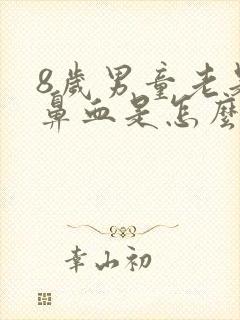 8歲男童老是
鼻血是怎麼
幸山初